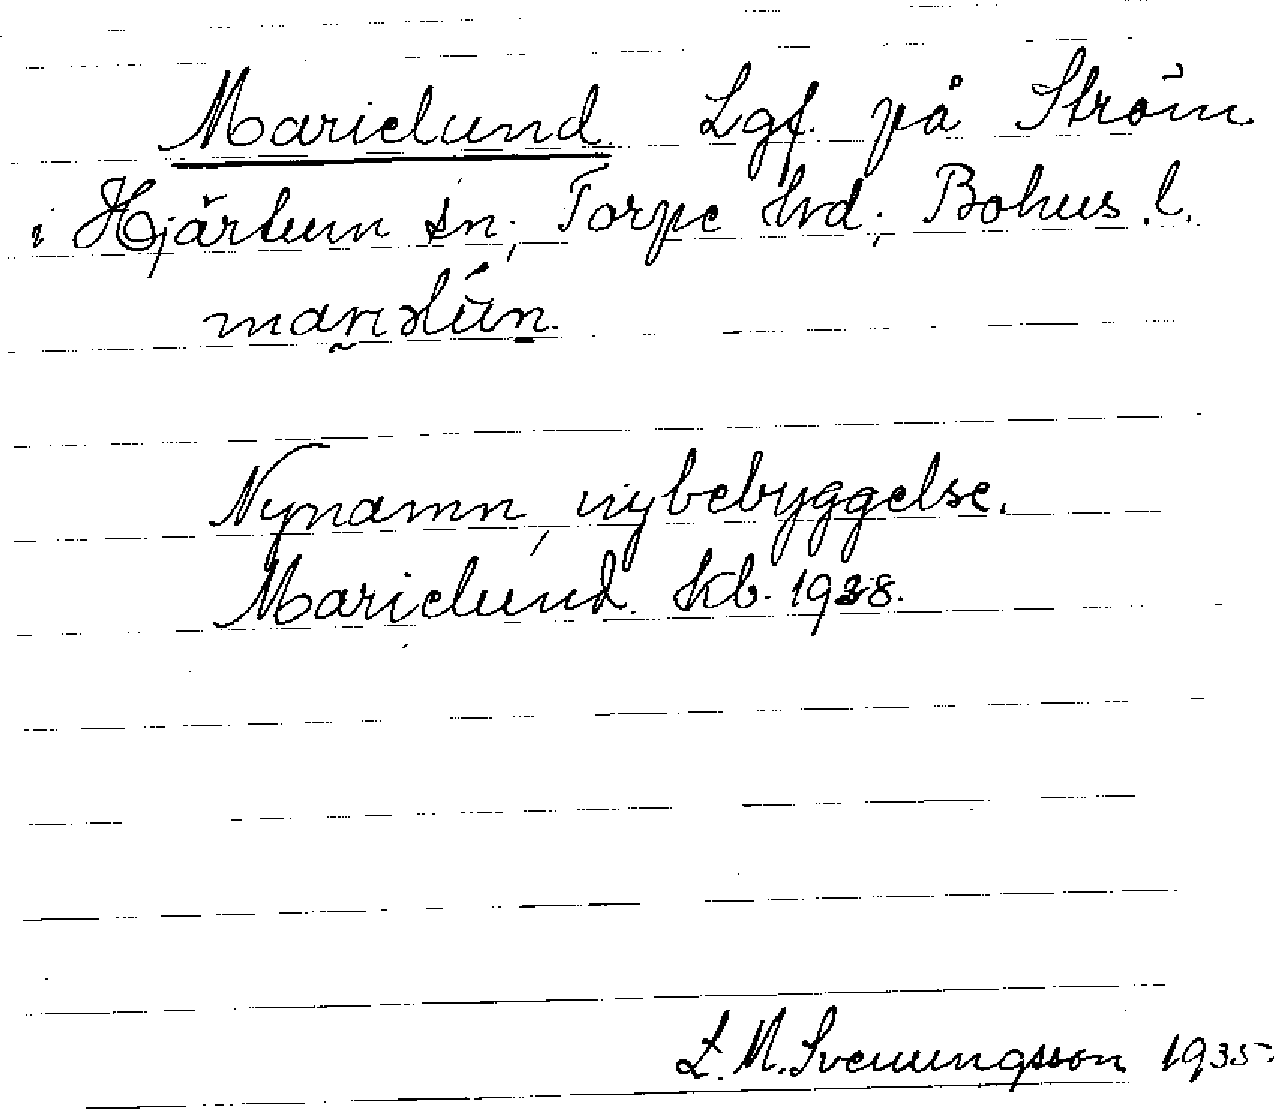 Marielund Lgf. på Ström
i Hjärtum sn, Torpe hd, Bohus l.
Nynamn, nybebyggelse.
Marielund. kb. 1928.
L. M. Svenungsson 1935.